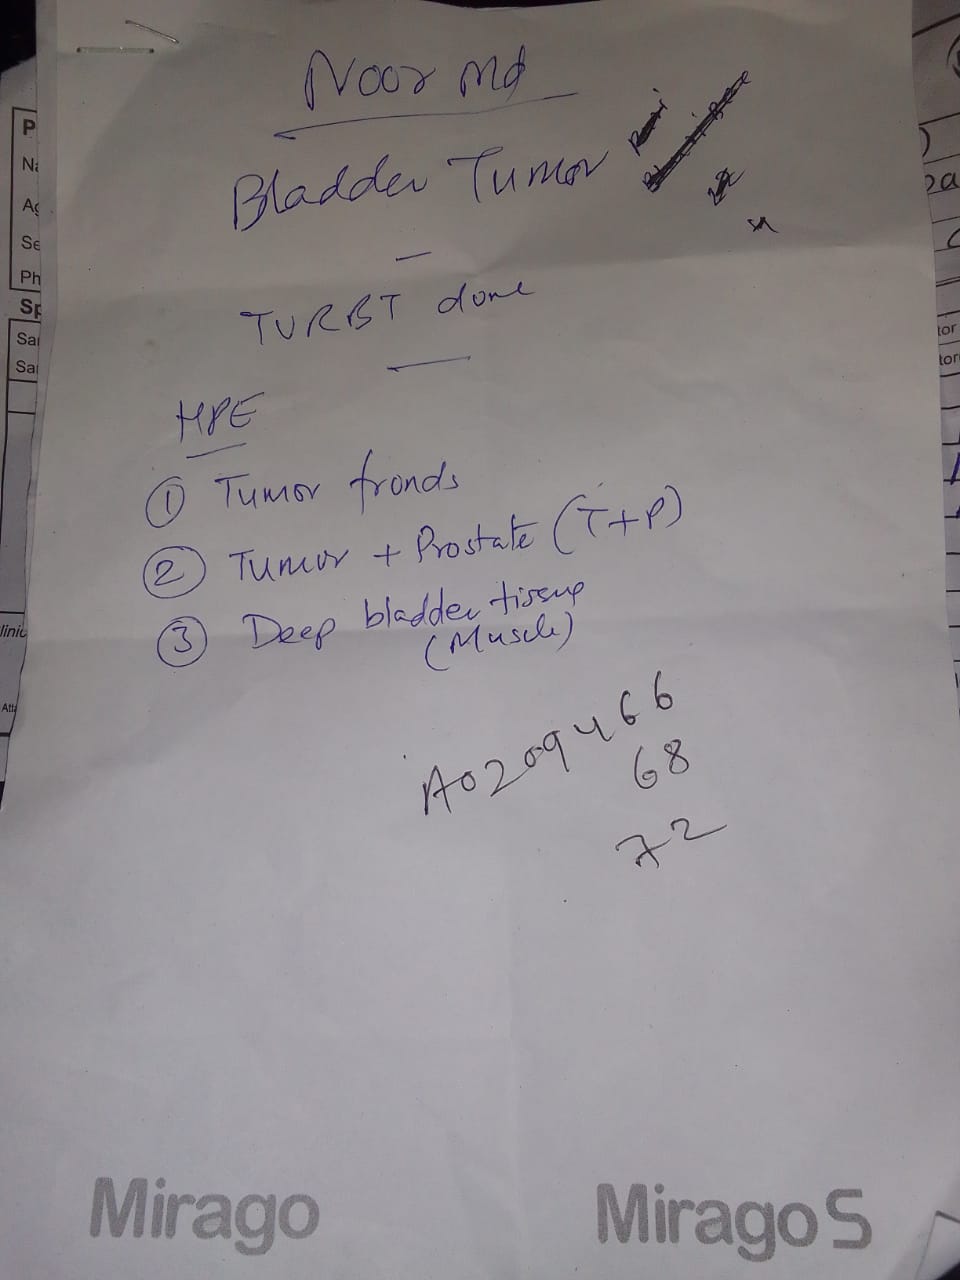 Noor Md
Bladder Tumor
TURBT done
HPE
① Tumor fronds
② Tumor + Prostate (T+P)
③ Deep bladder tissue
(Muscle)
A0209466
68
72
Mirago
Mirago S
P
Na
Ag
Se
Ph
Sp
Sa
Sa
linic
Atta
tor
tor